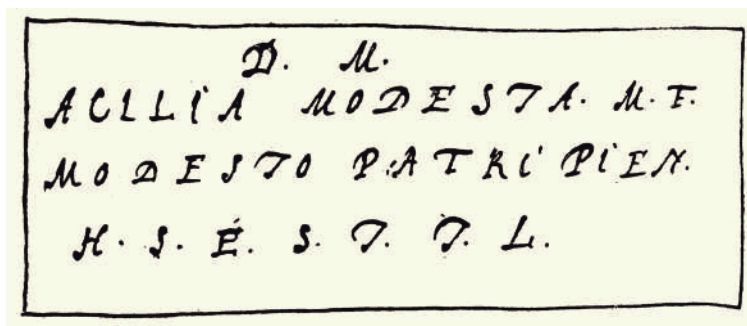 D. M.
ACLLIA MODESTA. M. F.
MODESTO PATRI PIEN.
H. S. E. S. T. T. L.